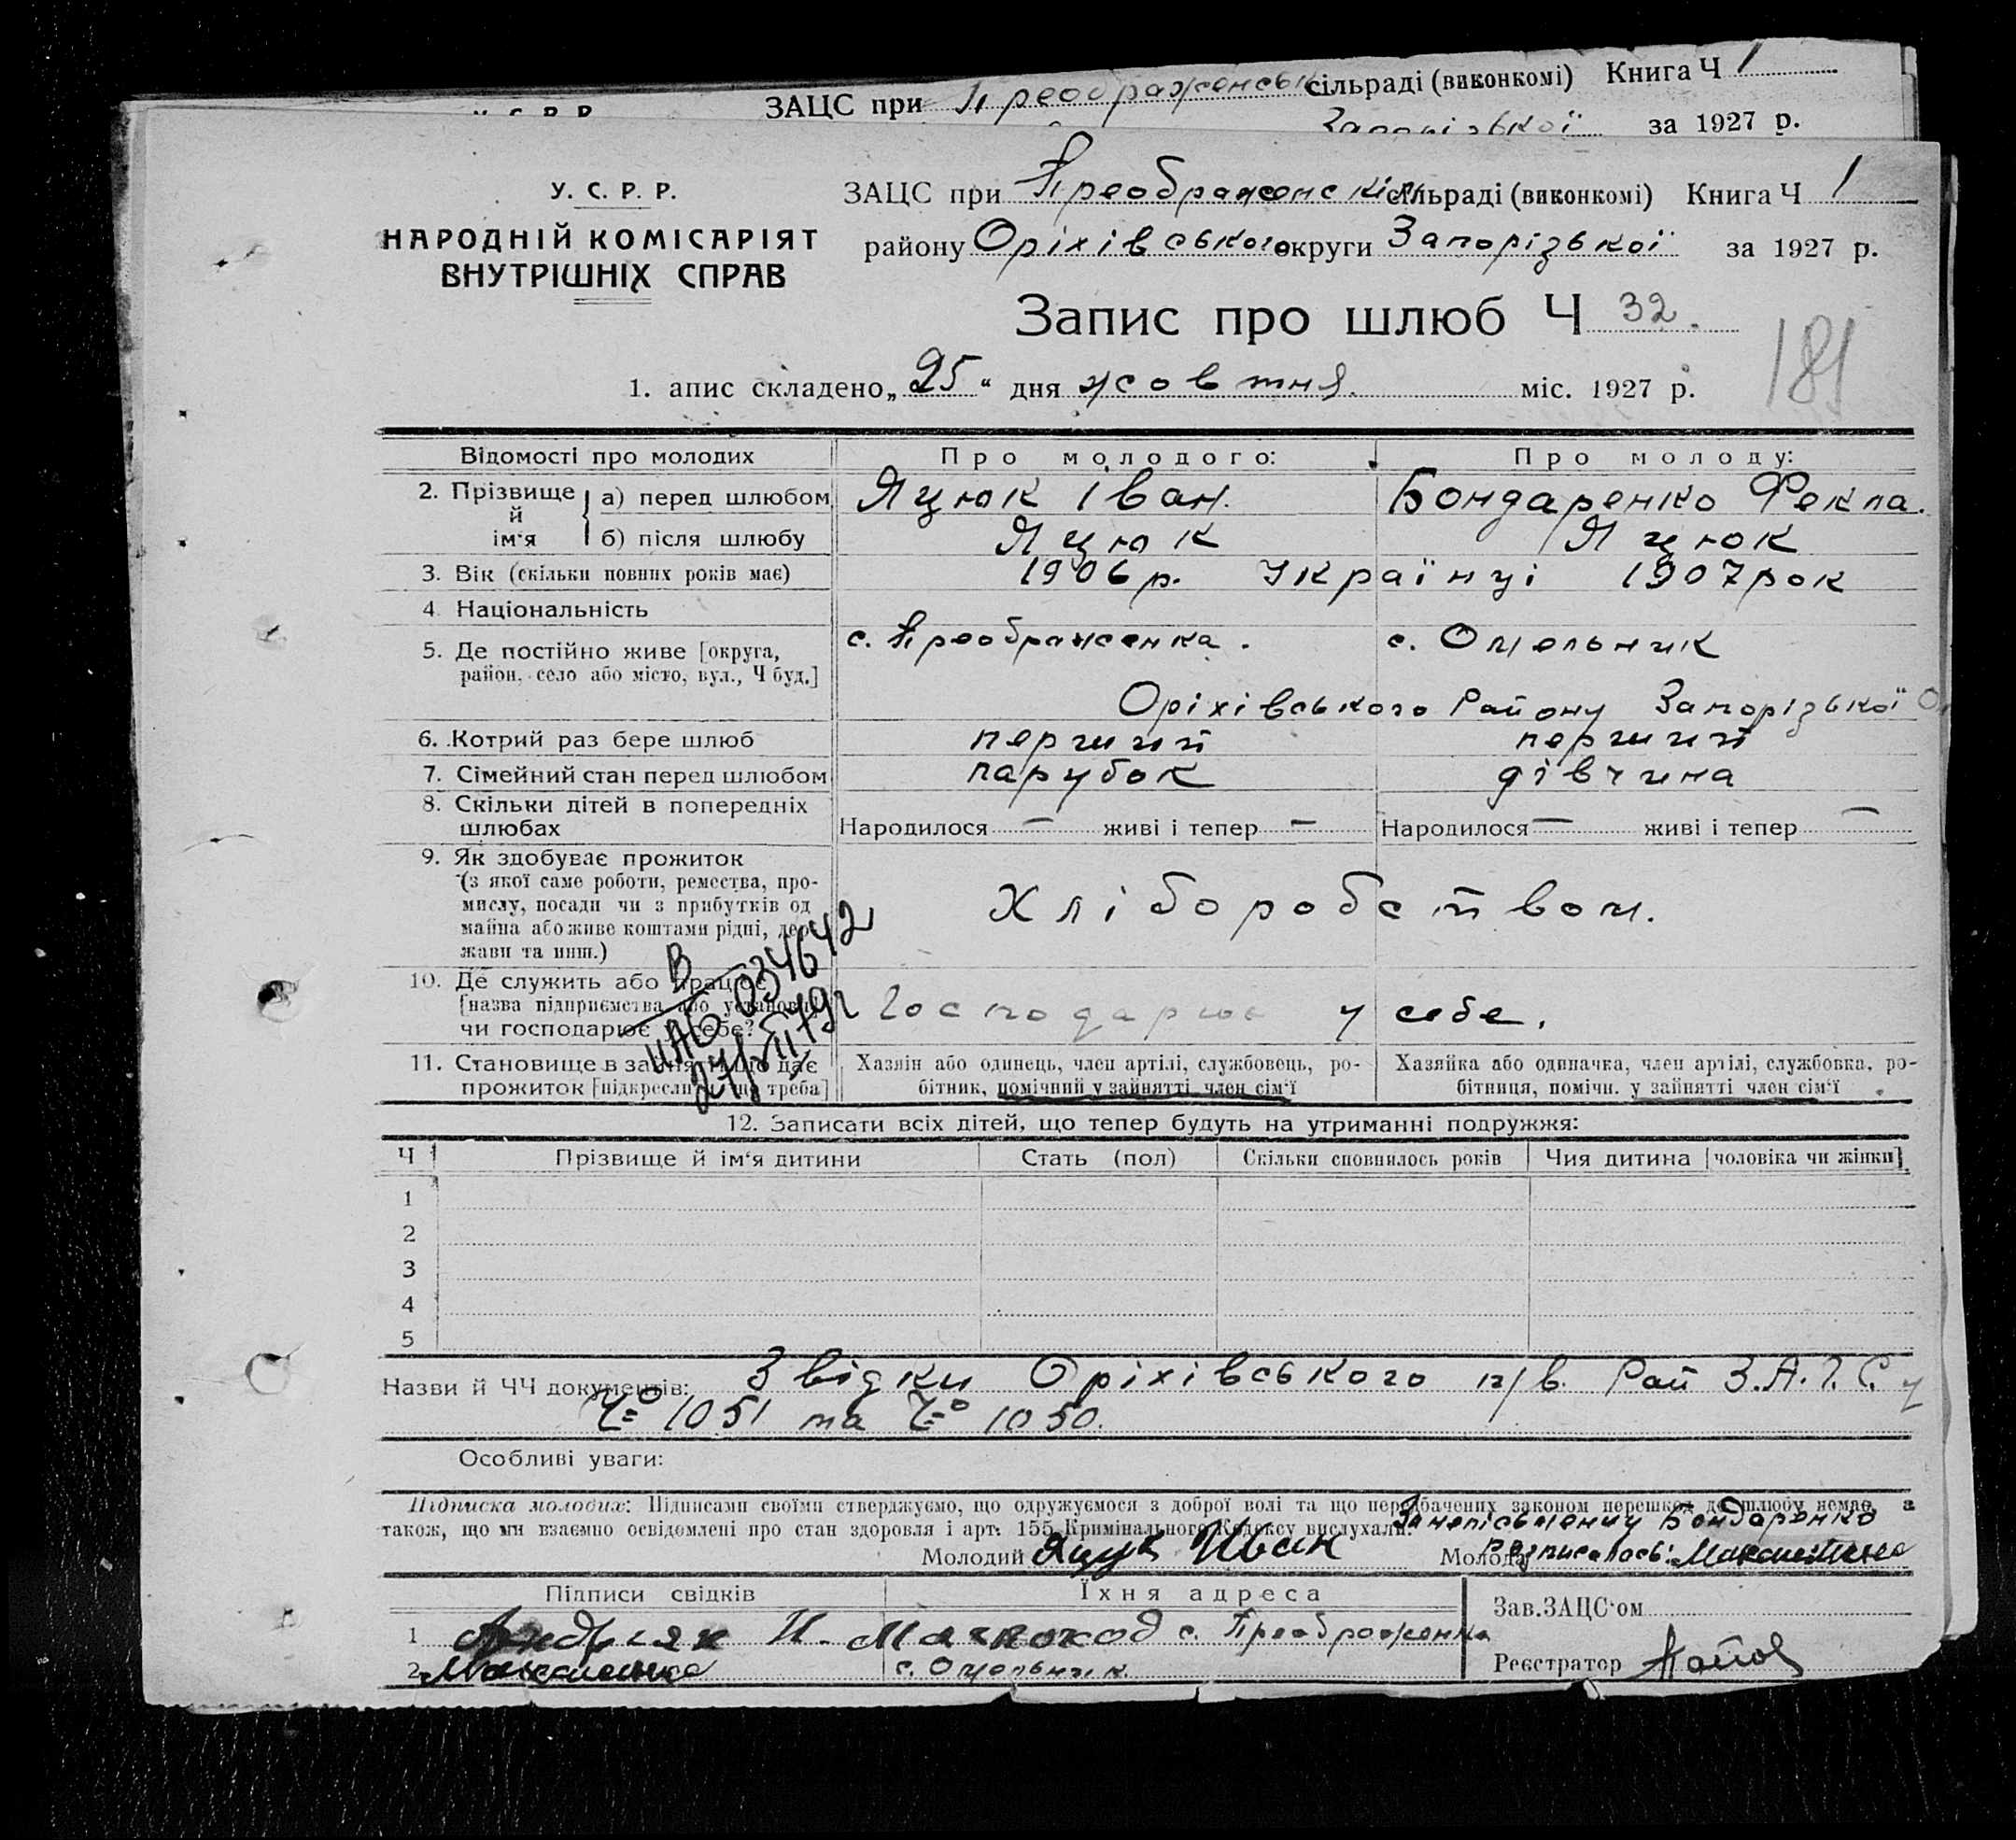 У. С. Р. Р.
ЗАЦС при Преображенськ сільраді (виконкомі) Книга Ч 1
Запорізької за 1927 р.
У. С. Р. Р.
НАРОДНІЙ КОМІСАРІЯТ
ВНУТРІШНІХ СПРАВ
ЗАЦС при Преображенскій сільраді (виконкомі) Книга Ч 1
району Оріхівського округи Запорізької за 1927 р.
Запис про шлюб Ч 32.
181
1. апис складено „25“ дня жовтня. міс. 1927 р.
Відомості про молодих Про молодого: Про молоду:
2. Прізвище й ім‘я
а) перед шлюбом Яцюк Іван. Бондаренко Фекла.
б) після шлюбу Яцюк Яцюк
3. Вік (скільки повних років має) 1906 р. Українці 1907 рок
4 Національність
5. Де постійно живе [округа, с. Преображенка. с. Омельник
район, село або місто, вул., Ч буд.]
Оріхівського Району Запорізької О
6. Котрий раз бере шлюб перший перший
7. Сімейний стан перед шлюбом парубок дівчина
8. Скільки дітей в попередніх
шлюбах Народилося — живі і тепер — Народилося — живі і тепер —
9. Як здобуває прожиток
(з якої саме роботи, ремества, про-
мислу, посади чи з прибутків од
майна або живе коштами рідні, дер-
жави та инш.)
Хліборобством.
10. Де служить або працює
[назва підприємства або установи]
чи господарює у себе?
Господарює у себе.
11. Становище в занятті що дає
прожиток [підкреслити що треба]
Хазяїн або одинець, член артілі, службовець, ро-
бітник, помічний у зайнятті член сім‘ї
Хазяйка або одиначка, член артілі, службовка, ро-
бітниця, помічн. у зайнятті член сім‘ї
12. Записати всіх дітей, що тепер будуть на утриманні подружжя:
Ч Прізвище й ім‘я дитини Стать (пол) Скільки сповнилось років Чия дитина [чоловіка чи жінки]
1
2
3
4
5
Назви й ЧЧ документів: Звідки Оріхівського п/в. Рай З.А.Г.С. у
Ч=о 1051 та Ч=о 1050.
Особливі уваги:
Підписка молодих: Підписами своїми стверджуємо, що одружуємося з доброї волі та що передбачених законом перешкод до шлюбу немає, а
також, що ми взаємно освідомлені про стан здоровля і арт. 155 Кримінального Кодексу вислухали.
За неписьменну Бондаренко
Молодий Яцук Иван Молода росписалось:
Підписи свідків Їхня адреса
1 с. Преображенка
2. с. Омельник.
Зав.ЗАЦС‘ом
Реєстратор